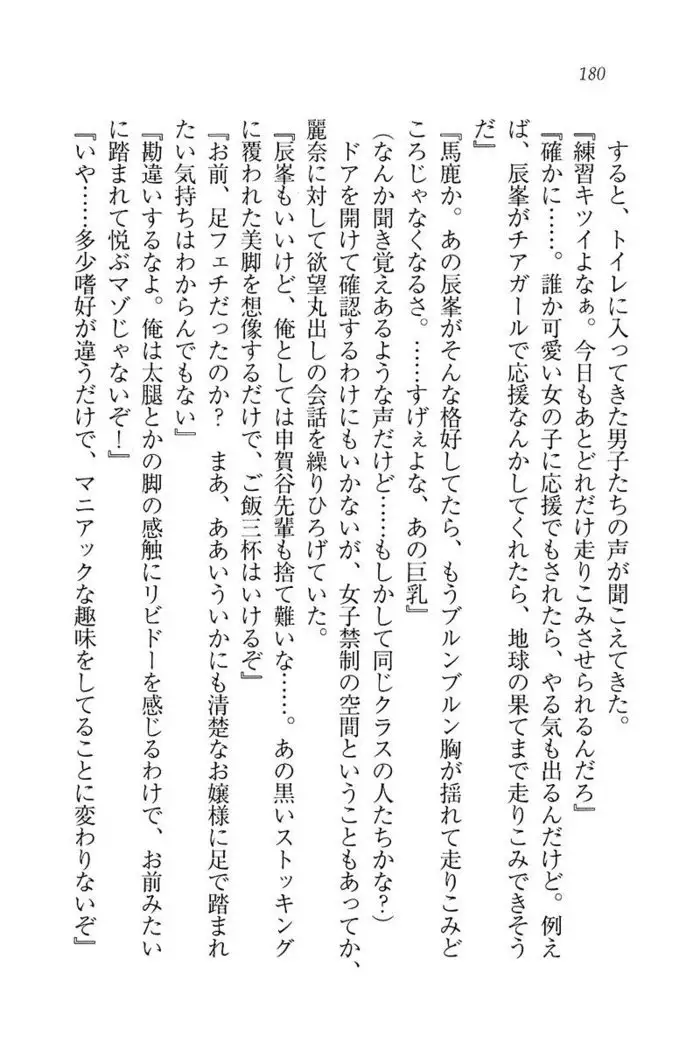 180
すると、トイレに入ってきた男子たちの声が聞こえてきた。
『練習キツイよなぁ。今日もあとどれだけ走りこみさせられるんだろ』
『確かに……。誰か可愛い女の子に応援でもされたら、やる気も出るんだけど。例え
ば、辰峯がチアガールで応援なんかしてくれたら、地球の果てまで走りこみできそう
だ』
『馬鹿か。あの辰峯がそんな格好してたら、もうブルンブルン胸が揺れて走りこみど
ころじゃなくなるさ。……すげぇよな、あの巨乳』
(なんか聞き覚えあるような声だけど……もしかして同じクラスの人たちかな？)
ドアを開けて確認するわけにもいかないが、女子禁制の空間ということもあってか、
麗奈に対して欲望丸出しの会話を繰りひろげていた。
『辰峯もいいけど、俺としては申賀谷先輩も捨て難いな……。あの黒いストッキング
に覆われた美脚を想像するだけで、ご飯三杯はいけるぞ』
『お前、足フェチだったのか？　まあ、ああいういかにも清楚なお嬢様に足で踏まれ
たい気持ちはわからんでもない』
『勘違いするなよ。俺は太腿とかの脚の感触にリビドーを感じるわけで、お前みたい
に踏まれて悦ぶマゾじゃないぞ！』
『いや……多少嗜好が違うだけで、マニアックな趣味をしてることに変わりないぞ』